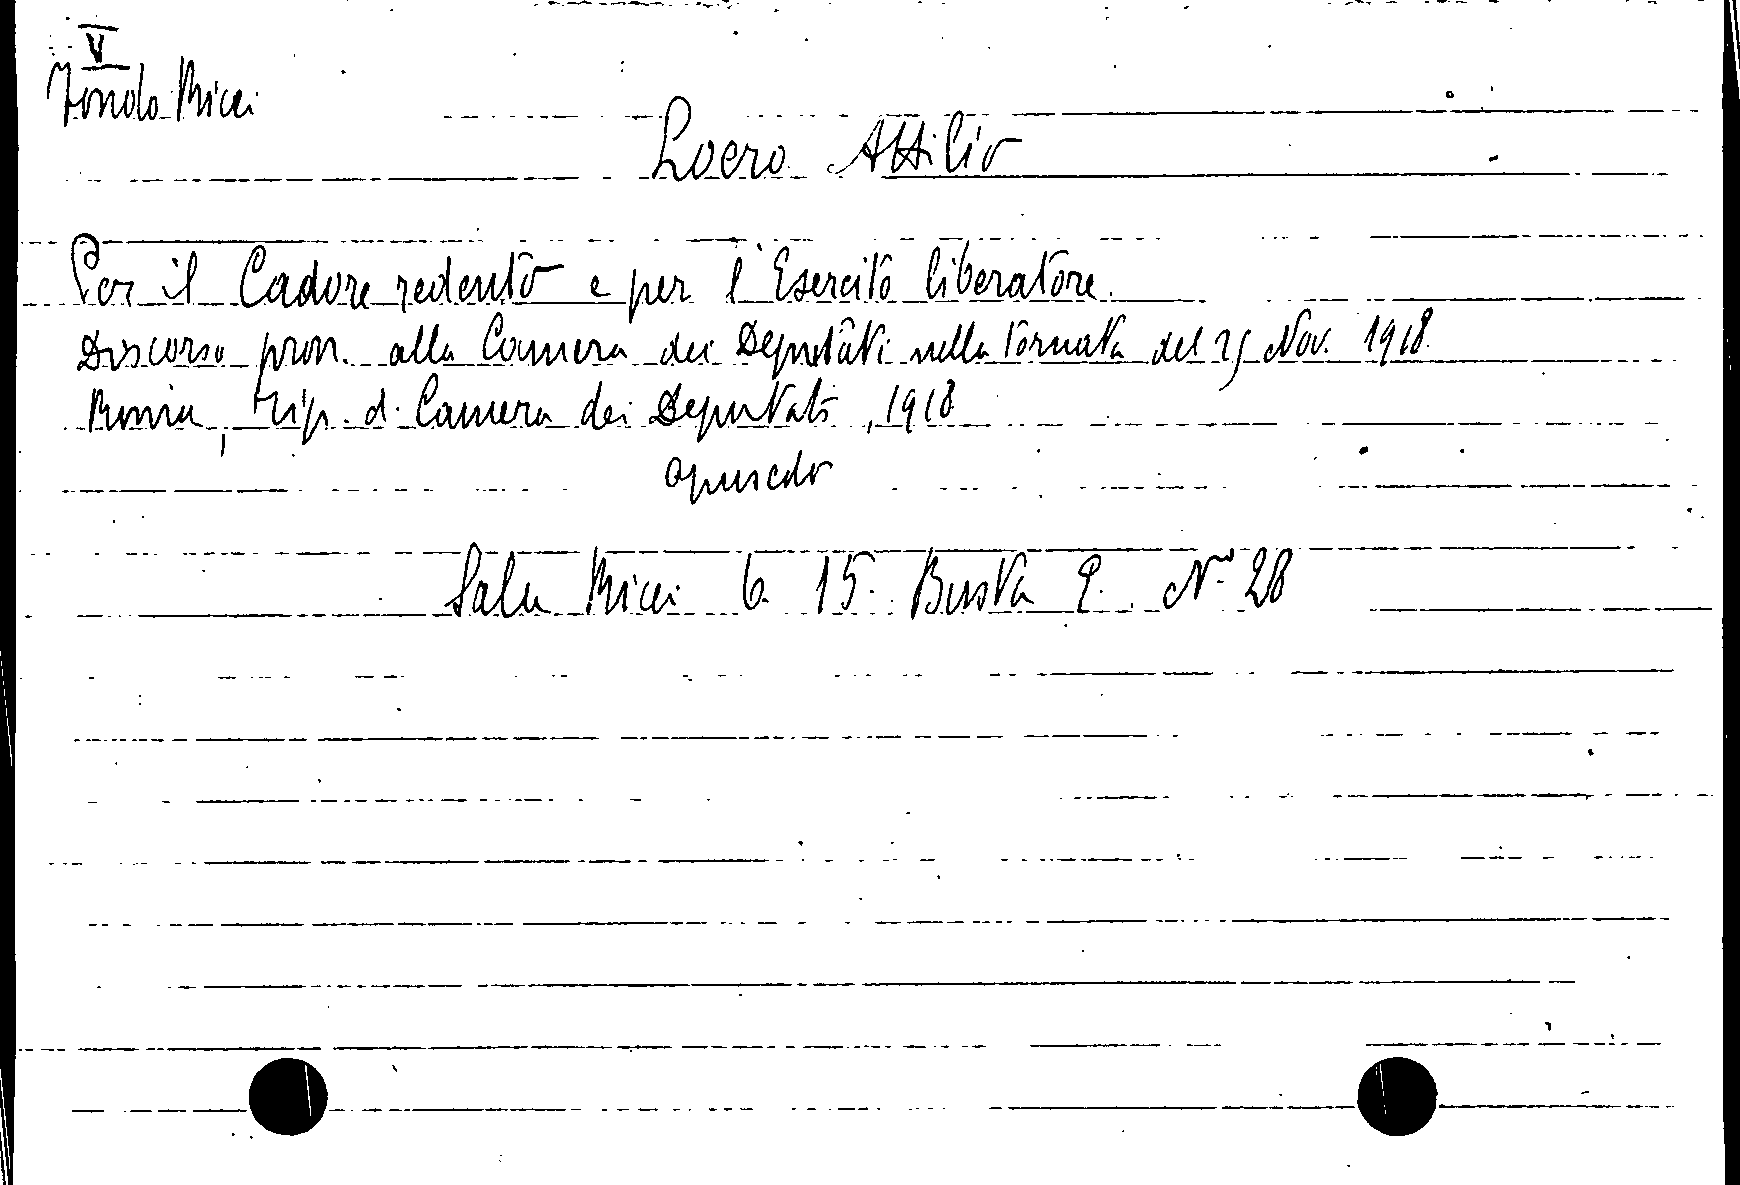 V
Fondo Ricci
Loero Attilio
Per il Cadore redento e per l'Esercito liberatore.
Discorso pron. alla Camera dei Deputati nella tornata del 25 Nov. 1918.
Roma, Tip. d. Camera dei Deputati, 1918
opuscolo
Sala Ricci 6. 15. Busta 9. N. 28